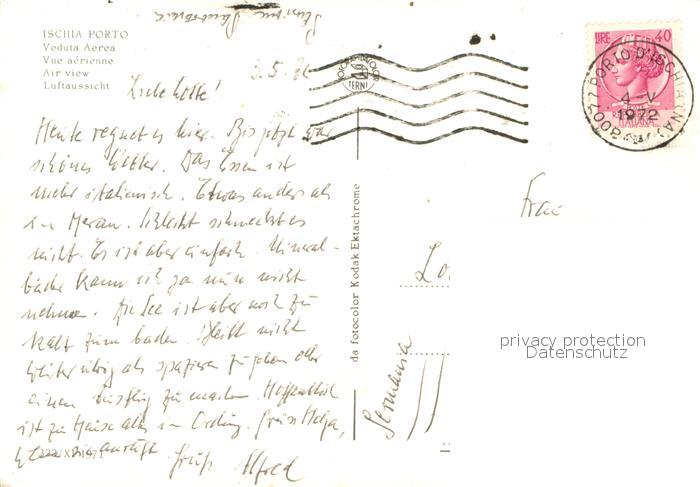 ISCHIA PORTO
Veduta Aerea
Vue aérienne
Air view
Luftaussicht
3.5.72
Liebe Lotte!
Heute regnet es hier. Bis jetzt war
schönes Wetter. Das Essen ist
mehr italienisch. Etwas anders als
in Meran. Schlecht schmeckt es
nicht. Es ist aber einfach. Mineral-
bäder kann ich ja nun nicht
nehmen. Die See ist aber noch zu
kalt zum baden. Bleibt nicht
weiter übrig als spazieren zu gehen oder
einen Ausflug zu machen. Hoffentlich
ist zu Hause alles in Ordnung. Grüss Helga,
wenn sie anruft.
Gruß Alfred
da fotocolor Kodak Ektachrome
TERNI
LIRE 40
ITALIANA
PORTO D'ISCHIA (NA)
4-V
1972
Frau
Lo
Germania
privacy protection
Datenschutz